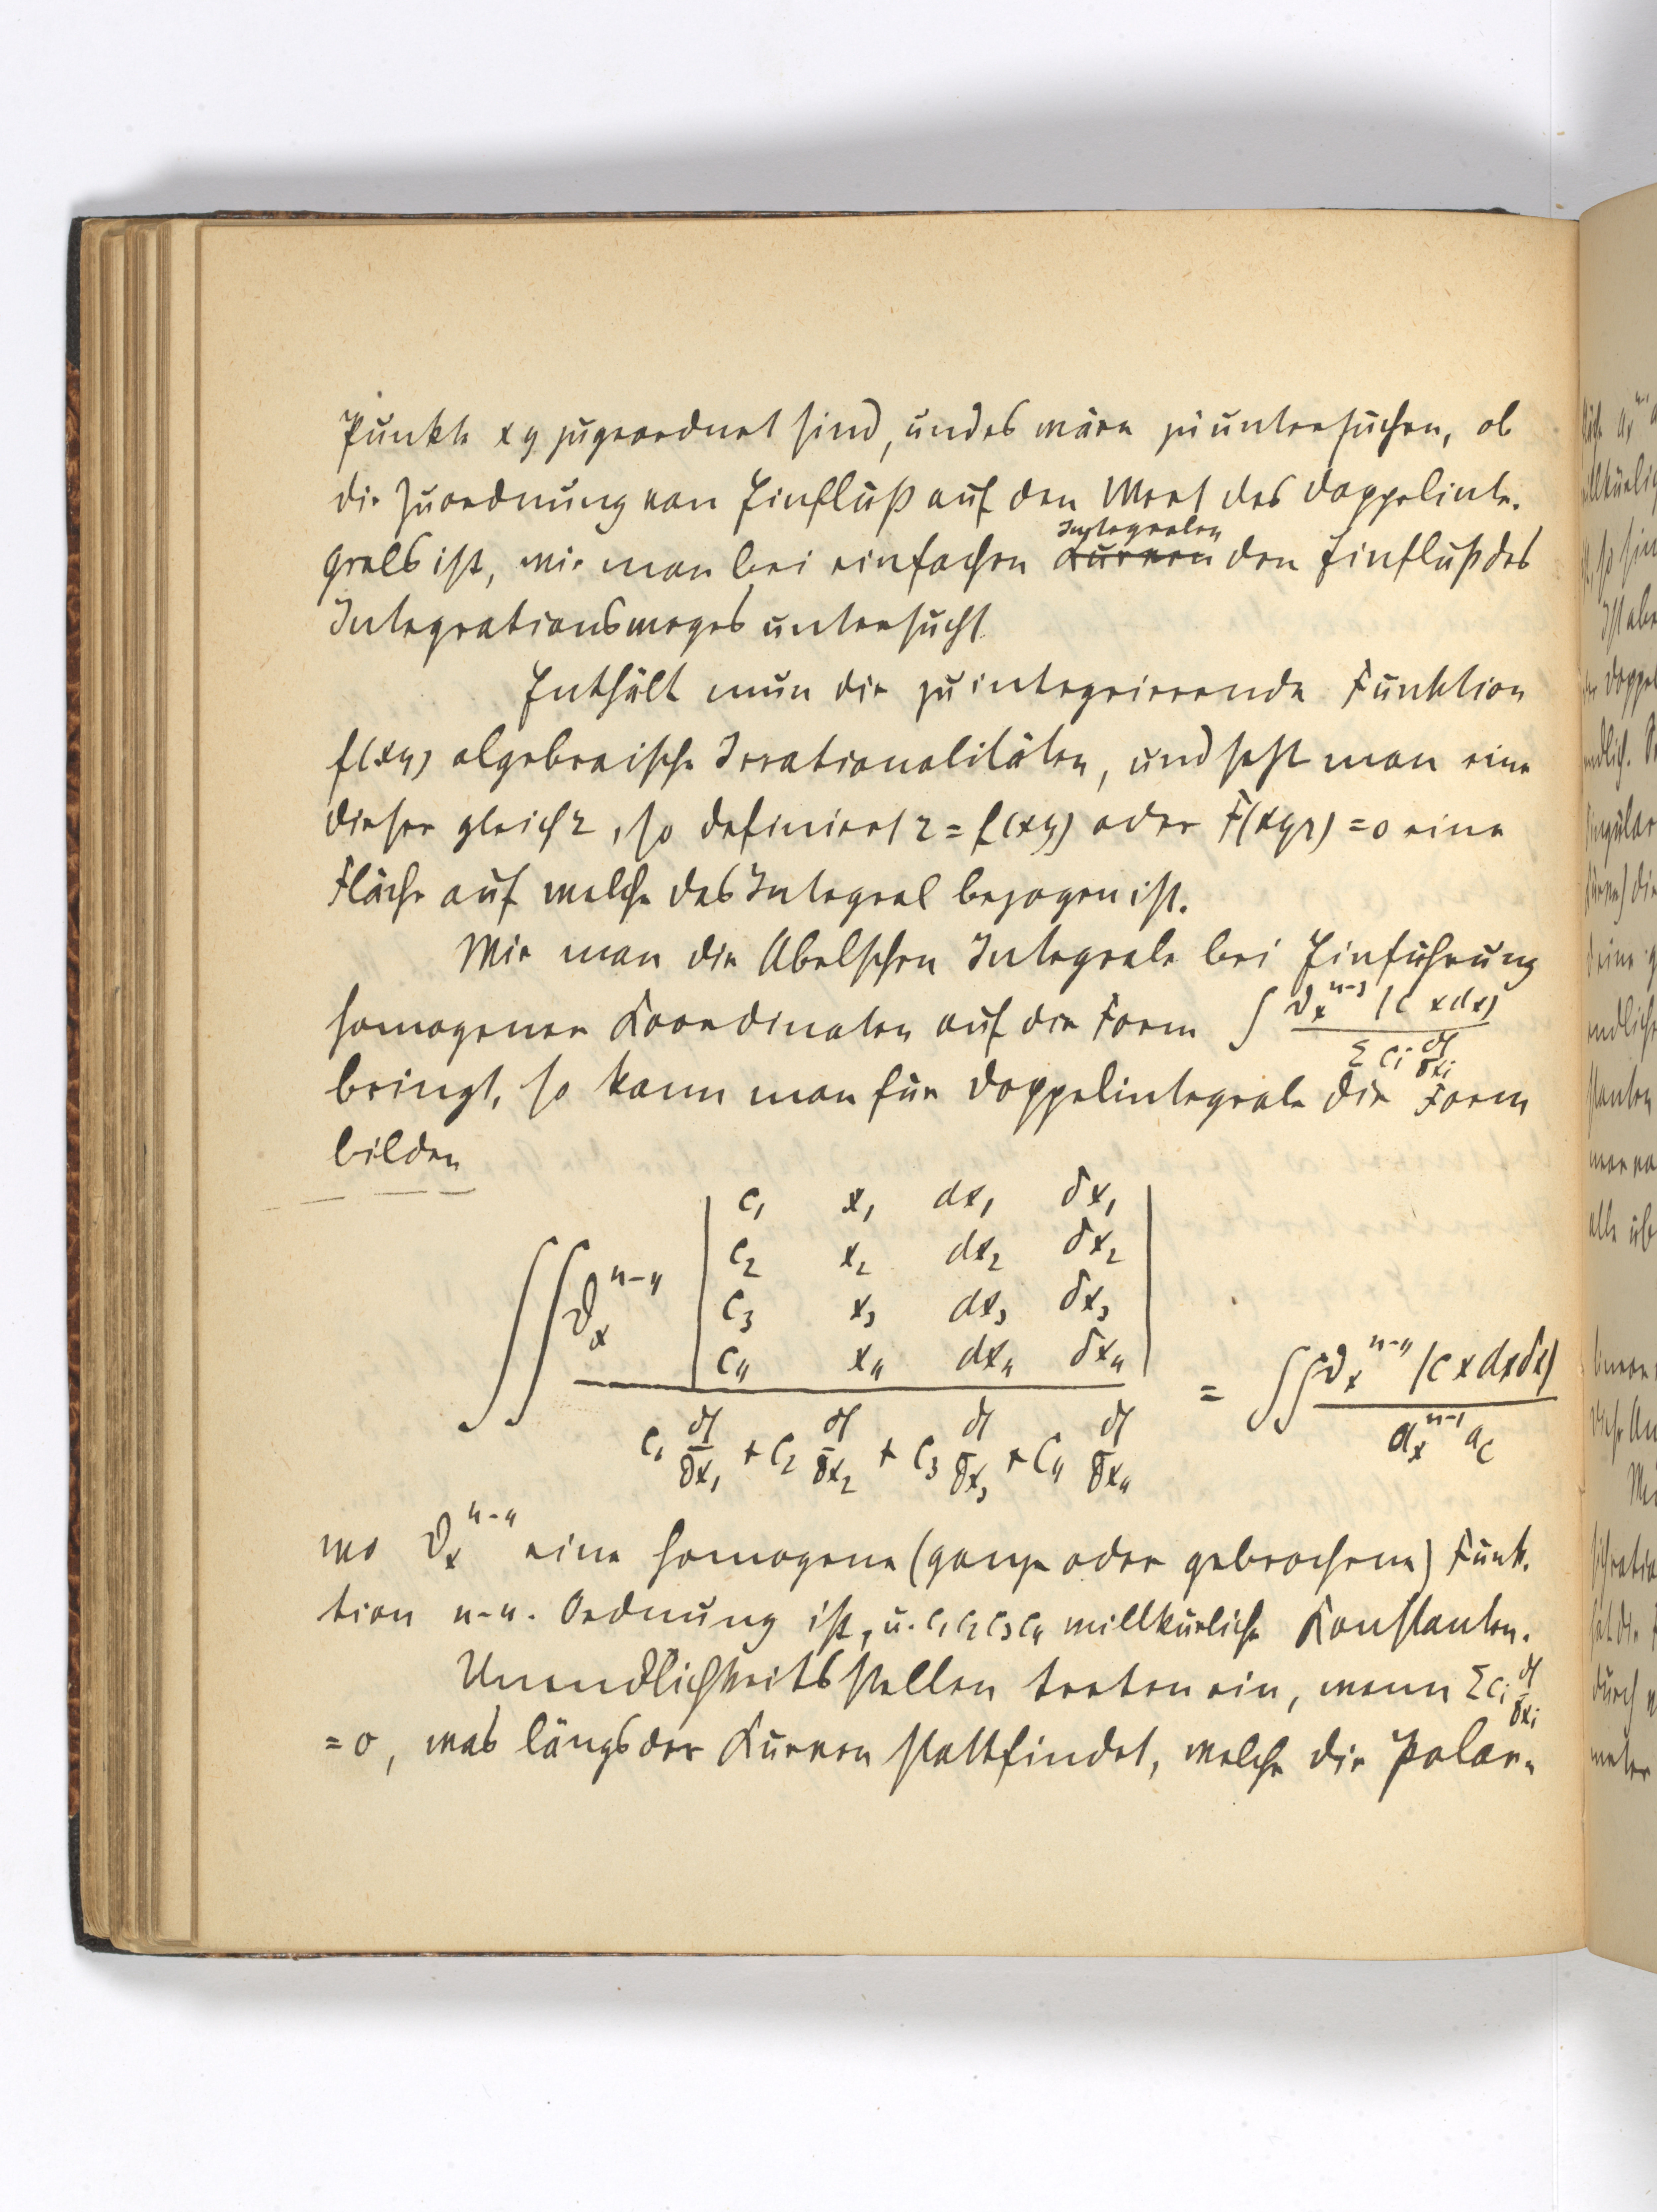 Punkte xy zugeordnet sind, und es wäre zu untersuchen, ob
die Zuordnung von Einfluß auf den Wert des Doppelinte-
grals ist, wie man bei einfachen Kurven Integralen den Einfluß des
Integrationsweges untersucht
Enthält nun die zu integrierende Funktion
f(xy) algebraische Irrationalitäten, und setzt man eine
dieser gleich z, so definiert z = f(xy) oder F(xyz) = 0 eine
Fläche auf welche das Integral bezogen ist.
Wie man die Abelschen Integrale bei Einführung
homogener Koordinaten auf die Form ∫ ϑ_x^{n-3} (c x dx) / Σ c_i ∂f/∂x_i
bringt, so kann man für Doppelintegrale die Form
bilden
∫∫ ϑ_x^{n-4} | c_1 x_1 dx_1 δx_1
c_2 x_2 dx_2 δx_2
c_3 x_3 dx_3 δx_3
c_4 x_4 dx_4 δx_4 |
/ c_1 ∂f/∂x_1 + c_2 ∂f/∂x_2 + c_3 ∂f/∂x_3 + c_4 ∂f/∂x_4 = ∫∫ ϑ_x^{n-4} (c x dx δx) / a_x^{n-1} a_c
wo ϑ_x^{n-4} eine homogene (ganze oder gebrochene) Funk-
tion n-4. Ordnung ist, u. c_1 c_2 c_3 c_4 willkürliche Konstanten.
Unendlichkeitsstellen treten ein, wenn Σ c_i ∂f/∂x_i
= 0, was längs der Kurven stattfindet, welche die Polar-